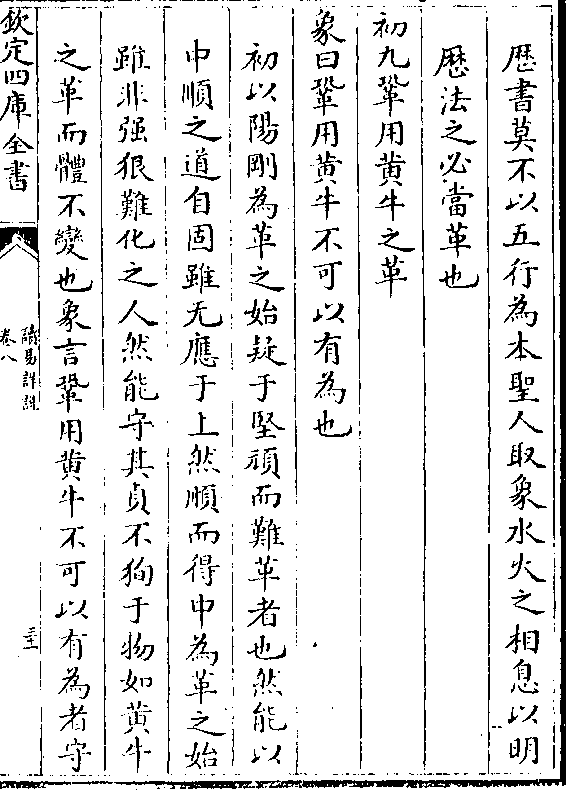 歴書莫不以五行為本聖人取象水火之相息以明
歴法之必當革也
初九鞏用黄牛之革
象曰鞏用黄牛不可以有為也
初以陽剛為革之始疑于堅頑而難革者也然能以
中順之道自固雖无應于上然順而得中為革之始
雖非强狠難化之人然能守其貞不狥于物如黄牛
之革而體不變也象言鞏用黄牛不可以有為者守
欽定四庫全書
讀易詳說
卷八